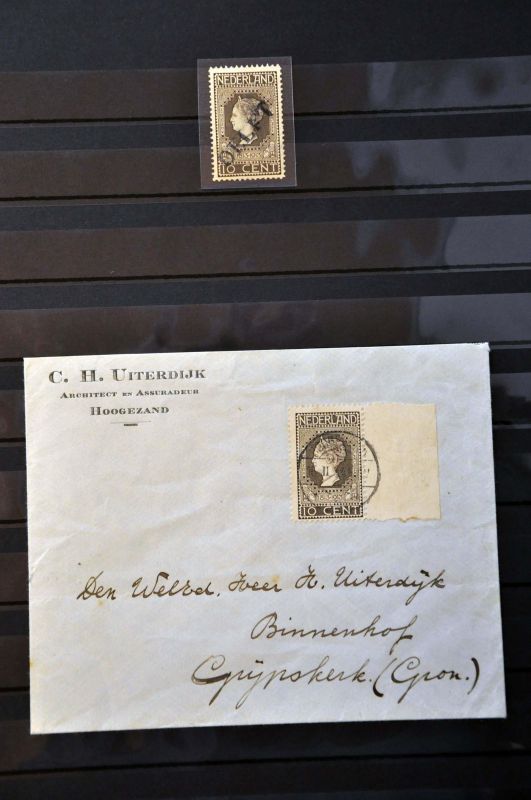 NEDERLAND
DELFT
10 CENT
C. H. UITERDIJK
ARCHITECT EN ASSURADEUR
HOOGEZAND
NEDERLAND
10 CENT
Den WelEd. Heer H. Uiterdijk
Binnenhof
Grijpskerk. (Gron.)